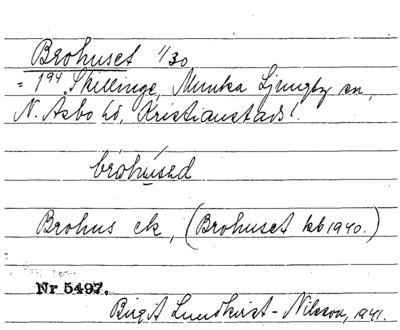 Brohuset 1/30
= 194 Skillinge, Munka Ljungby sn,
N. Åsbo hd, Kristianstads l.
bròhúsed
Brohus ek, (Brohuset kb 1940.)
Nr 5497.
Birgit Lundkvist-Nilsson, 1941.